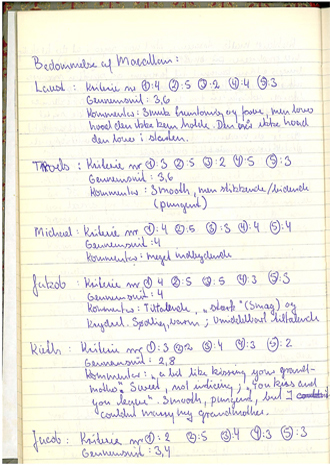 Bedømmelse af Macallan:
Laust: Kriterie nr ①:4 ②:5 ③:2 ④:4 ⑤:3
Gennemsnit: 3,6
Kommentar: Smuk og farve, men lover
hvad den ikke kan holde. Den ikke hvad
den lover i starten.
Troels: Kriterie nr ①:3 ②:5 ③:2 ④:5 ⑤:3
Gennemsnit: 3,6
Kommentar: Smooth, men stikkende/bidende
(pungent)
Michael: Kriterie nr ①:4 ②:5 ③:3 ④:4 ⑤:4
Gennemsnit: 4
Kommentar: meget indbydende
Jakob: Kriterie nr ①:4 ②:5 ③:5 ④:3 ⑤:3
Gennemsnit: 4
Kommentar: Tiltalende, "stærk" (smag) og
krydret. varm; Umiddelbart tiltalende
Keith: Kriterie nr ①:3 ②:2 ③:4 ④:3 ⑤:2
Gennemsnit: 2,8
Kommentar: "a bit like kissing your grand-
mother". Sweet, not inticing; "You kiss and
you". Smooth, pungent, but I
couldn't marry my grandmother.
Jacob: Kriterie nr ①:2 ②:5 ③:4 ④:3 ⑤:3
Gennemsnit: 3,4